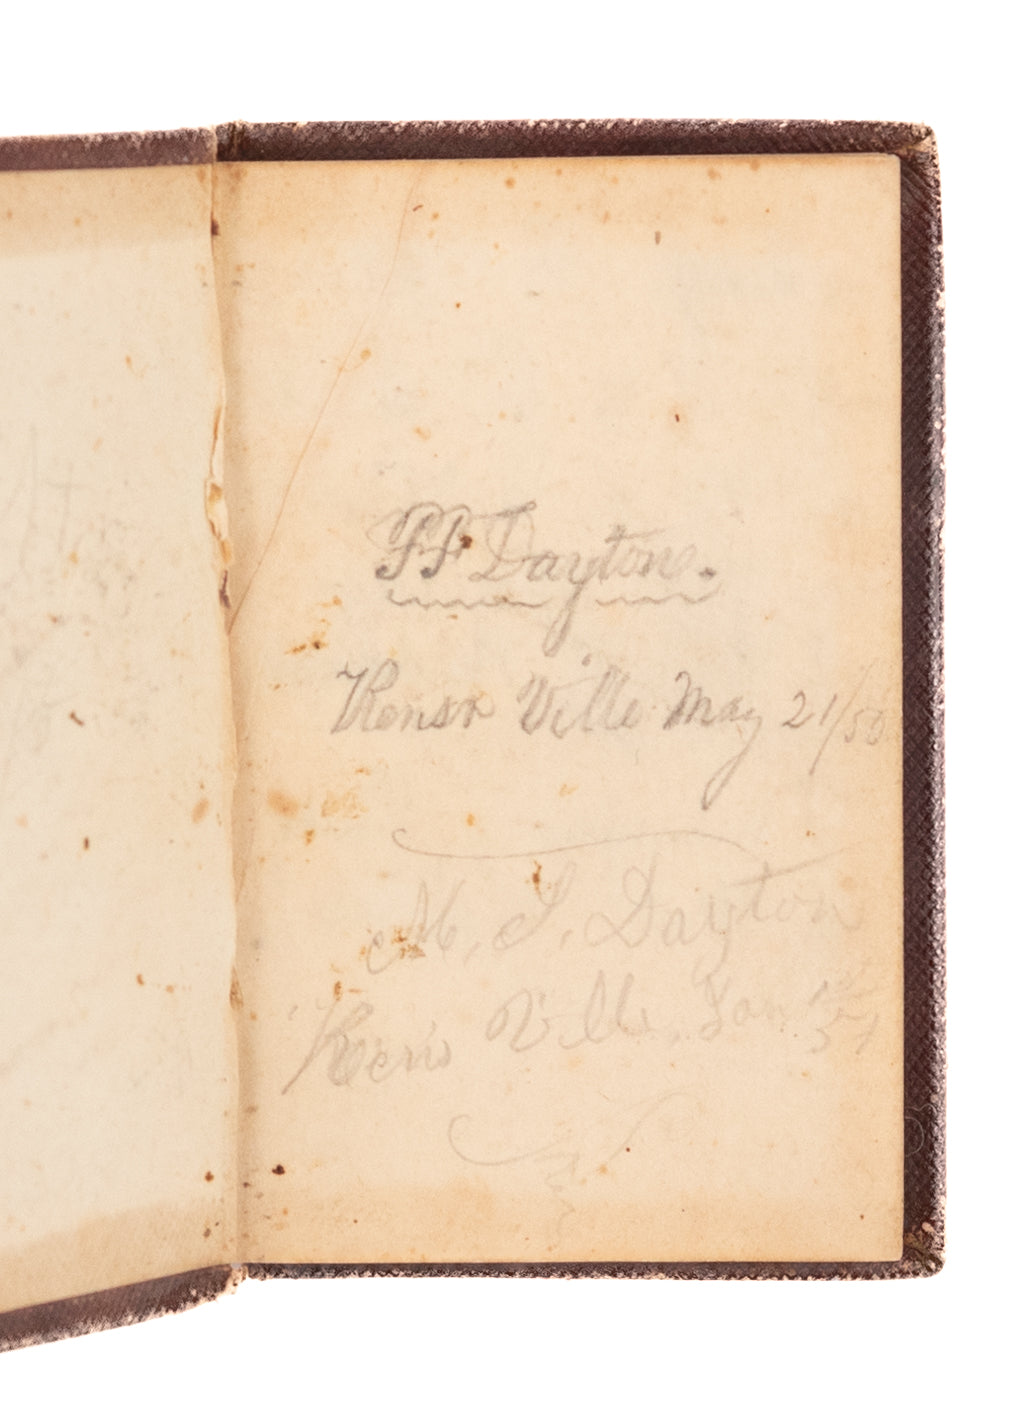 FF Dayton.
Kensr Ville May 21/56
M. I. Dayton
Ken's Ville, Jan 57